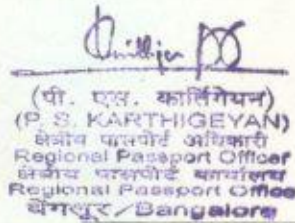 (पी. एस. कार्तिगेयन)
(P. S. KARTHIGEYAN)
क्षेत्रीय पासपोर्ट अधिकारी
Regional Passport Officer
क्षेत्रीय पासपोर्ट कार्यालय
Regional Passport Office
बेंगलूर/Bangalore